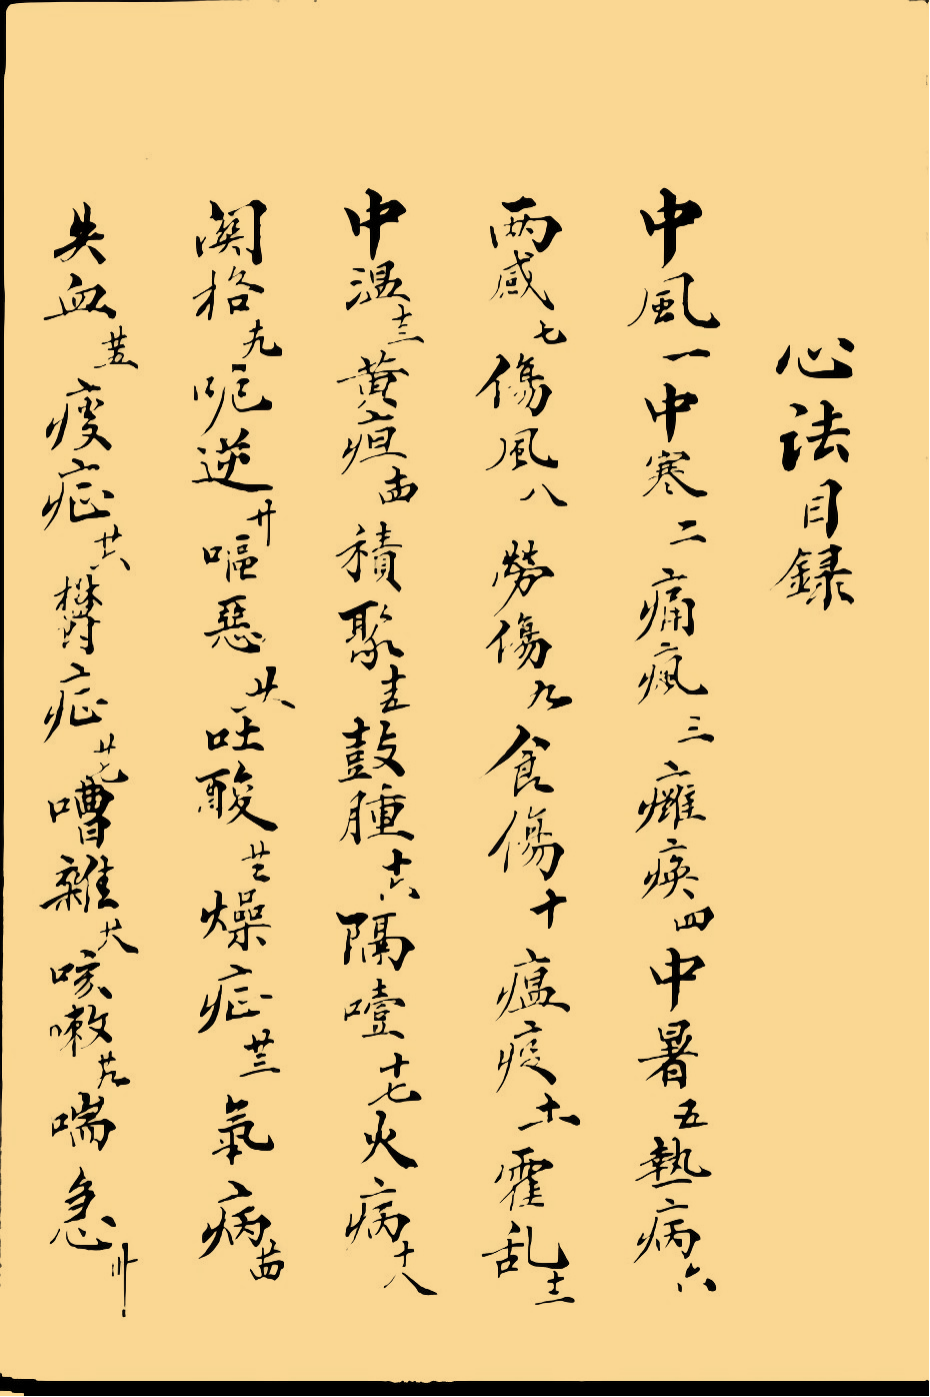 心法目録
中風一中寒二痛瘋三癱瘓四中暑五熱病六
兩感七傷風八勞傷九食傷十瘟疫十一霍乱十二
中濕十三黄疸十四積聚十五鼓腫十六隔噎十七火病十八
関格十九呃逆廿嘔惡廿一吐酸廿二燥症廿三氣病廿四
失血廿五痰症廿六欝症廿七嘈雜廿八咳嗽廿九喘急卅